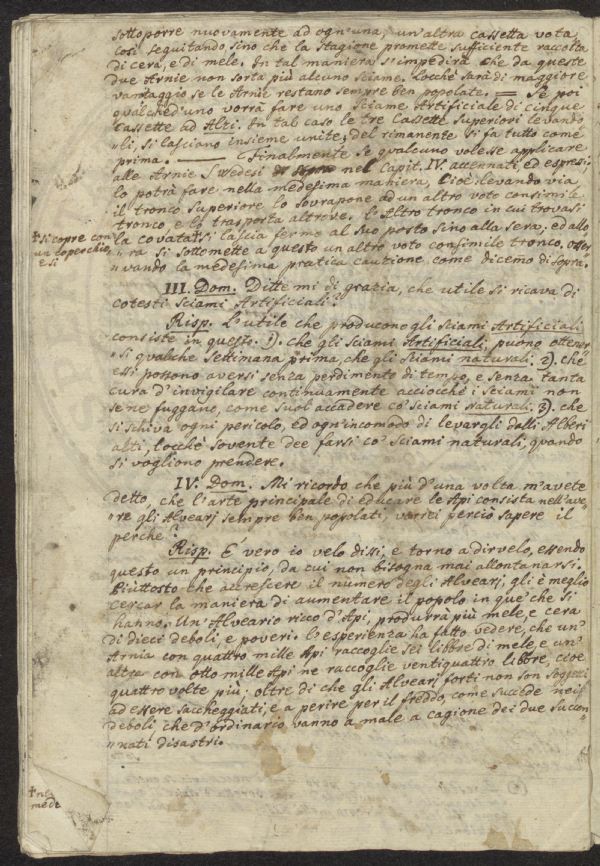 sottoporre nuovamente ad ogn'una, un'altra cassetta vota,
così seguitando, sino che la stagione promette sufficiente raccolta
di cera, e di mele. In tal maniera s'impedirà che da queste
due Arnie non sorta più alcuno sciame. Locchè sarà di maggiore
vantaggio se le Arnie restano sempre ben popolate. = Se poi
qualched'uno vorrà fare uno Sciame Artificiale di cinque
cassette ad Alzi. In tal caso le tre Cassette Superiori levando
"li, si lasciano insieme unite; del rimanente si fa tutto come
prima. — Finalmente se qualcuno volesse applicare
alle Arnie Svedesi nel Capit. IV. accennati, ed espressi,
lo potrà fare nella medesima maniera, cioè levando via
il tronco superiore lo sovrapone ad un altro voto consimile
tronco, e lo trasporta altrove. L'altro tronco in cui trovasi
la covata, si lascia fermo al suo posto sino alla sera, ed allo
"ra si sottomette a questo un altro voto consimile tronco, osser
"vando la medesima pratica cautione come dicemo di sopra.
+ si copre con
un coperchio,
e si
III. Dom. Ditte mi di grazia, che utile si ricava di
cotesti Sciami Artificiali?
Risp. L'utile che producono gli Sciami Artificiali
consiste in questo. 1). che gli Sciami Artificiali, puono ottener
"si qualche Settimana prima, che gli Sciami naturali: 2). che
essi possono aversi senza perdimento di tempo, e senza tanta
cura d'invigilare continuamente acciocchè i sciami non
se ne fuggano, come suol accadere co' Sciami Naturali. 3). che
si schiva ogni pericolo, ed ogn'incomodo di levargli dalli Alberi
alti, locchè sovente dee farsi co' Sciami naturali, quando
si vogliono prendere.
IV. Dom. Mi ricordo che più d'una volta m'avete
detto, che l'arte principale di educare le Api consista nell'ave
"re gli Alvearj sempre ben popolati, vorrei perciò sapere il
perche?
Risp. É vero io velo dissi, e torno a dirvelo, essendo
questo un principio, da cui non bisogna mai allontanarsi.
Piùttosto che accrescere il numero degli Alvearj, gli è meglio
cercar la maniera di aumentare il popolo in que' che si
hanno. Un' Alveario ricco d'Api, produrrà più mele, e cera
di dieci deboli, e poveri. L'esperienza ha fatto vedere, che un'
Arnia con quattro mille Api raccoglie sei libbre di mele, e un'
altra con otto mille Api ne raccoglie ventiquattro libbre, cioè
quattro volte più; oltre di che gli Alvearj forti non son soggetti
ad essere saccheggiati, e a perire per il freddo, come succede neij
deboli, che d'ordinario vanno a male a cagione dei due succen
"nati disastri.